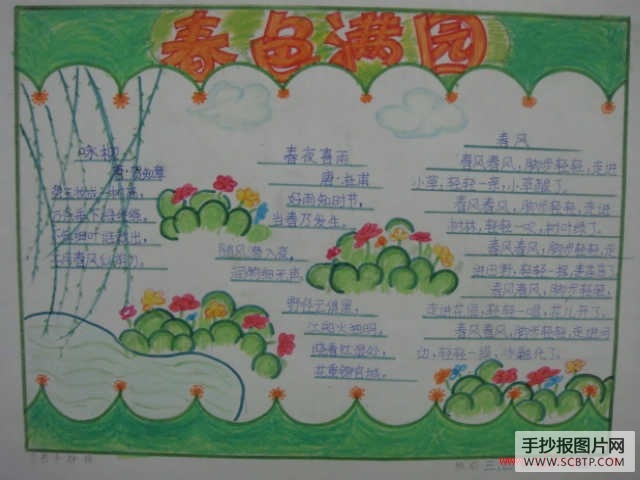 春色满园
咏柳
唐·贺知章
碧玉妆成一树高,
万条垂下绿丝绦。
不知细叶谁裁出,
二月春风似剪刀。
春夜喜雨
唐·杜甫
好雨知时节,
当春乃发生。
随风潜入夜,
润物细无声。
野径云俱黑,
江船火独明。
晓看红湿处,
花重锦官城。
春风
春风春风,脚步轻轻,走进
小草,轻轻一亲,小草醒了。
春风春风,脚步轻轻,走进
树林,轻轻一吹,树叶绿了。
春风春风,脚步轻轻,走
进田野,轻轻一摇,麦苗
春风春风,脚步轻轻,
走进花园,轻轻一唱,花儿开了。
春风春风,脚步轻轻,走进河
边,轻轻一摸,冰融化了。
手抄报图片网
WWW.SCBTP.COM